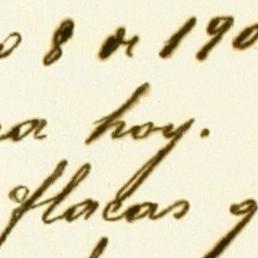 8 de 190
hoy.
flacas